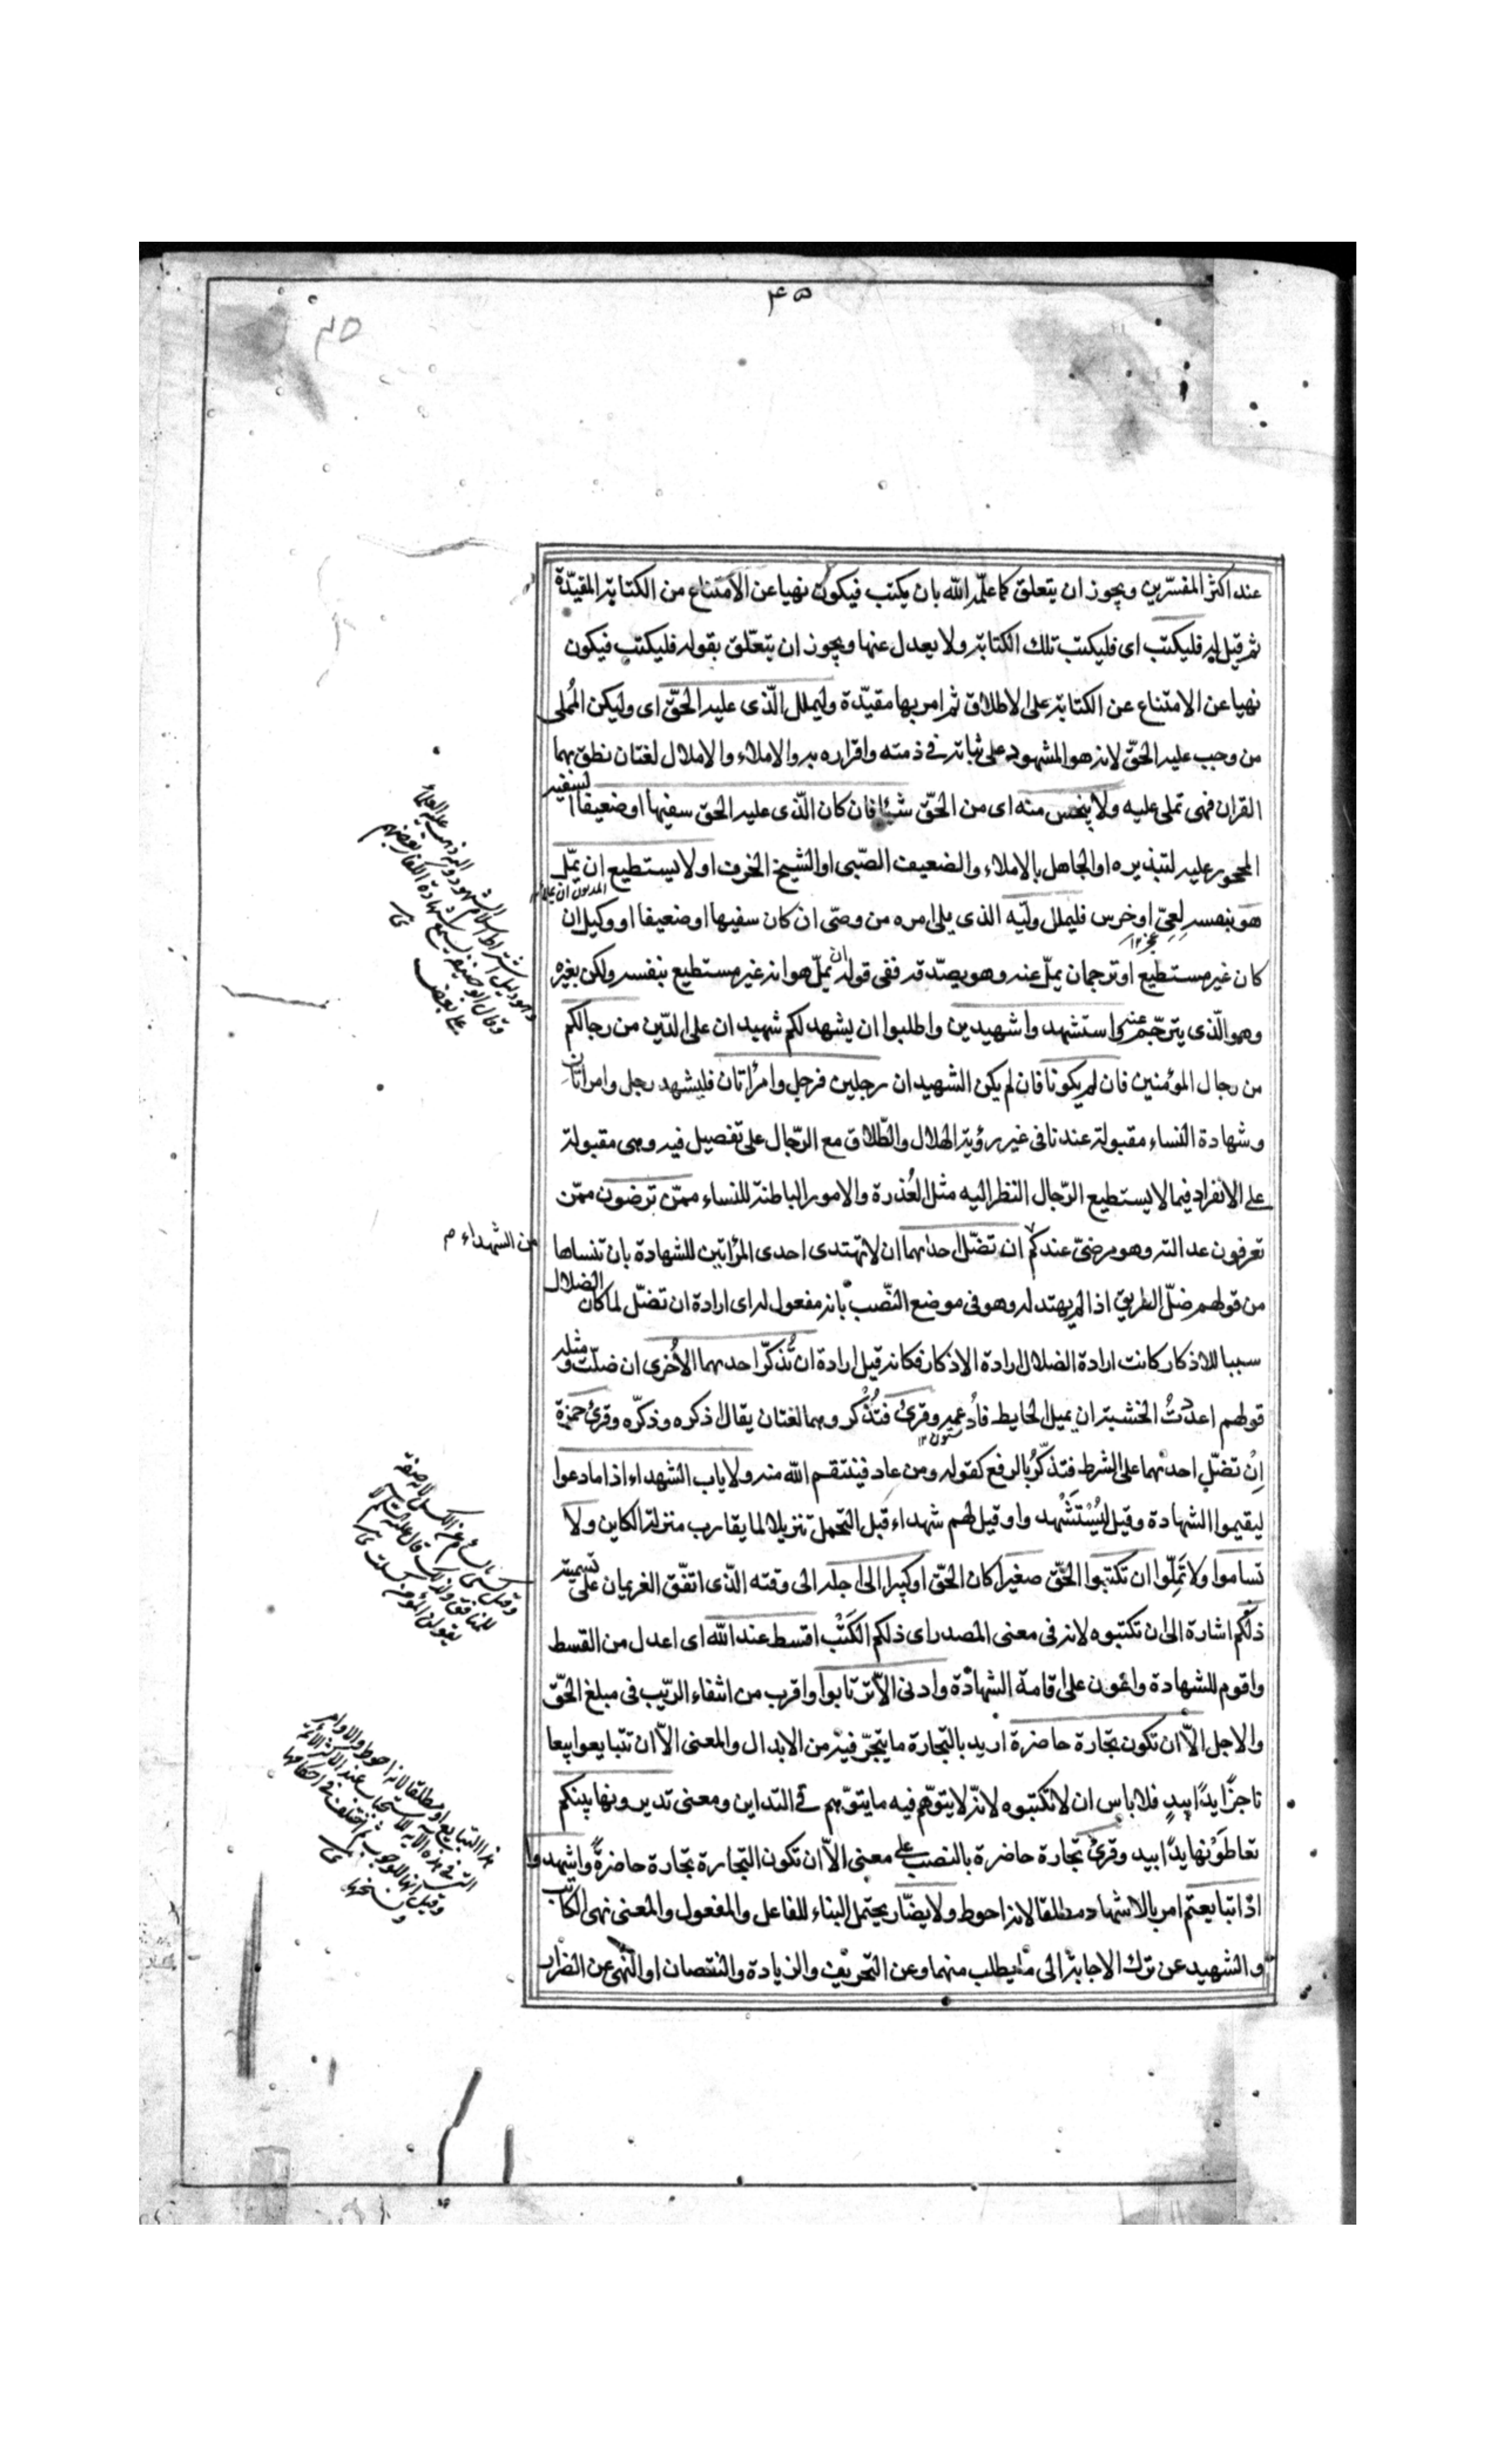 ٤٥
٤٥
عند اكثر المفسّرين ويجوز ان يتعلق كما علّمه الله بان يكتب فيكون نهيا عن الامتناع من الكتابة المقيّدة
ثم قيل له فليكتب اى فليكتب تلك الكتابة ولا يعدل عنها ويجوز ان يتعلّق بقوله فليكتب فيكون
نهيا عن الامتناع عن الكتابة على الاطلاق ثم امر بها مقيّدة وليملل الّذى عليه الحقّ اى وليكن المُملى
من وجب عليه الحقّ لانه هو المشهود على ثباته فى ذمته واقراره به والاملاء والاملال لغتان نطق بهما
القران فهى تملى عليه ولا يبخس منه اى من الحقّ شيئا فان كان الّذى عليه الحق سفيها او ضعيفا السفيه
المحجور عليه لتبذيره او الجاهل بالاملاء والضعيف الصّبى او الشيخ الخرف او لا يستطيع ان يملّ
هو بنفسه لِعِىّ او خرس فليملل وليّه الذى يلى امره من وصّى ان كان سفيها او ضعيفا او وكيل ان
كان غير مستطيع او ترجمان يملّ عنه وهو يصّدقه ففى قوله ان يملّ هو انه غير مستطيع بنفسه ولكن بغيره
وهو الّذى يترجّم عنه واستشهدوا شهيدين واطلبوا ان يشهد لكم شهيدان على الدّين من رجالكم
من رجال المؤمنين فان لم يكونا فان لم يكن الشهيدان رجلين فرجل وامرأتان فليشهد رجل وامراتان
وشهادة النساء مقبولة عندنا فى غير رؤية الهلال والطّلاق مع الرّجال على تفصيل فيه وهى مقبولة
على الانفراد فيما لا يستطيع الرّجال النظر اليه مثل العُذرة والامور الباطنة للنساء ممّن ترضون ممّن
تعرفون عدالته وهو مرضىّ عندكم ان تضّل احديهما ان لا تهتدى احدى المرٔاتين للشهادة بان تنساها
من الشهداء م
من قولهم ضلّ الطريق اذا لم يهتد له وهو فى موضع النّصب بانه مفعول له اى ارادة ان تضّل لما كان الضلال
سببا للاذكار كانت ارادة الضلال ارادة الاذكار فكانه قيل ارادة ان تُذكّر احديهما الأخرى ان ضلّت ومثله
قولهم اعددتُ الخشبة ان يميل الحايط فادعمه وقرئ فتُذْكر وهما لغتان يقال اذكره وذكّره وقرئ حمزة
اِنْ تضّل احديهما على الشرط فتذكّرُ بالرفع كقوله ومن عاد فينتقم الله منه ولا ياب الشهداء اذا ما دعوا
ليقيموا الشهادة وقيل ليُسْتَشْهدوا وقيل لهم شهداء قبل التحمل تنزيلا لما يقارب منزلة الكاين ولا
تساموا ولا تَمِلّوا ان تكتبوا الحقّ صغيرا كان الحقّ او كبيرا الى اجله الى وقته الّذى اتفّق الغريمان على تسميته
ذلكم اشارة الى ان تكتبوه لانه فى معنى المصدر اى ذلكم الكَتْب اقسط عند الله اى اعدل من القسط
واقوم للشهادة واعون على اقامة الشهادة وادنى الّا ترتابوا واقرب من انتفاء الريّب فى مبلغ الحقّ
والاجل الّا ان تكون تجارة حاضرة اريد بالتجارة ما يتجّر فيه من الابدال والمعنى الّا ان تتبايعوا بيعا
ناجزًا يدًا بيدٍ فلا باس ان لا تكتبوه لانّه لا يتوهّم فيه ما يتوهّم فى التداين ومعنى تديرونها بينكم
تعاطَوْنها يدًا بيد وقرئ تجارة حاضرة بالنصب على معنى الّا ان تكون التجارة تجارة حاضرةً واشهدوا
اذا تبايعتم امر بالاشهاد مطلقا لانه احوط ولا يضّار يحتمل البناء للفاعل والمفعول والمعنى نهى الكاتب
والشهيد عن ترك الاجابة الى ما يطلب منهما وعن التحريف والزيادة والنقصان او النّهى عن الضّرار